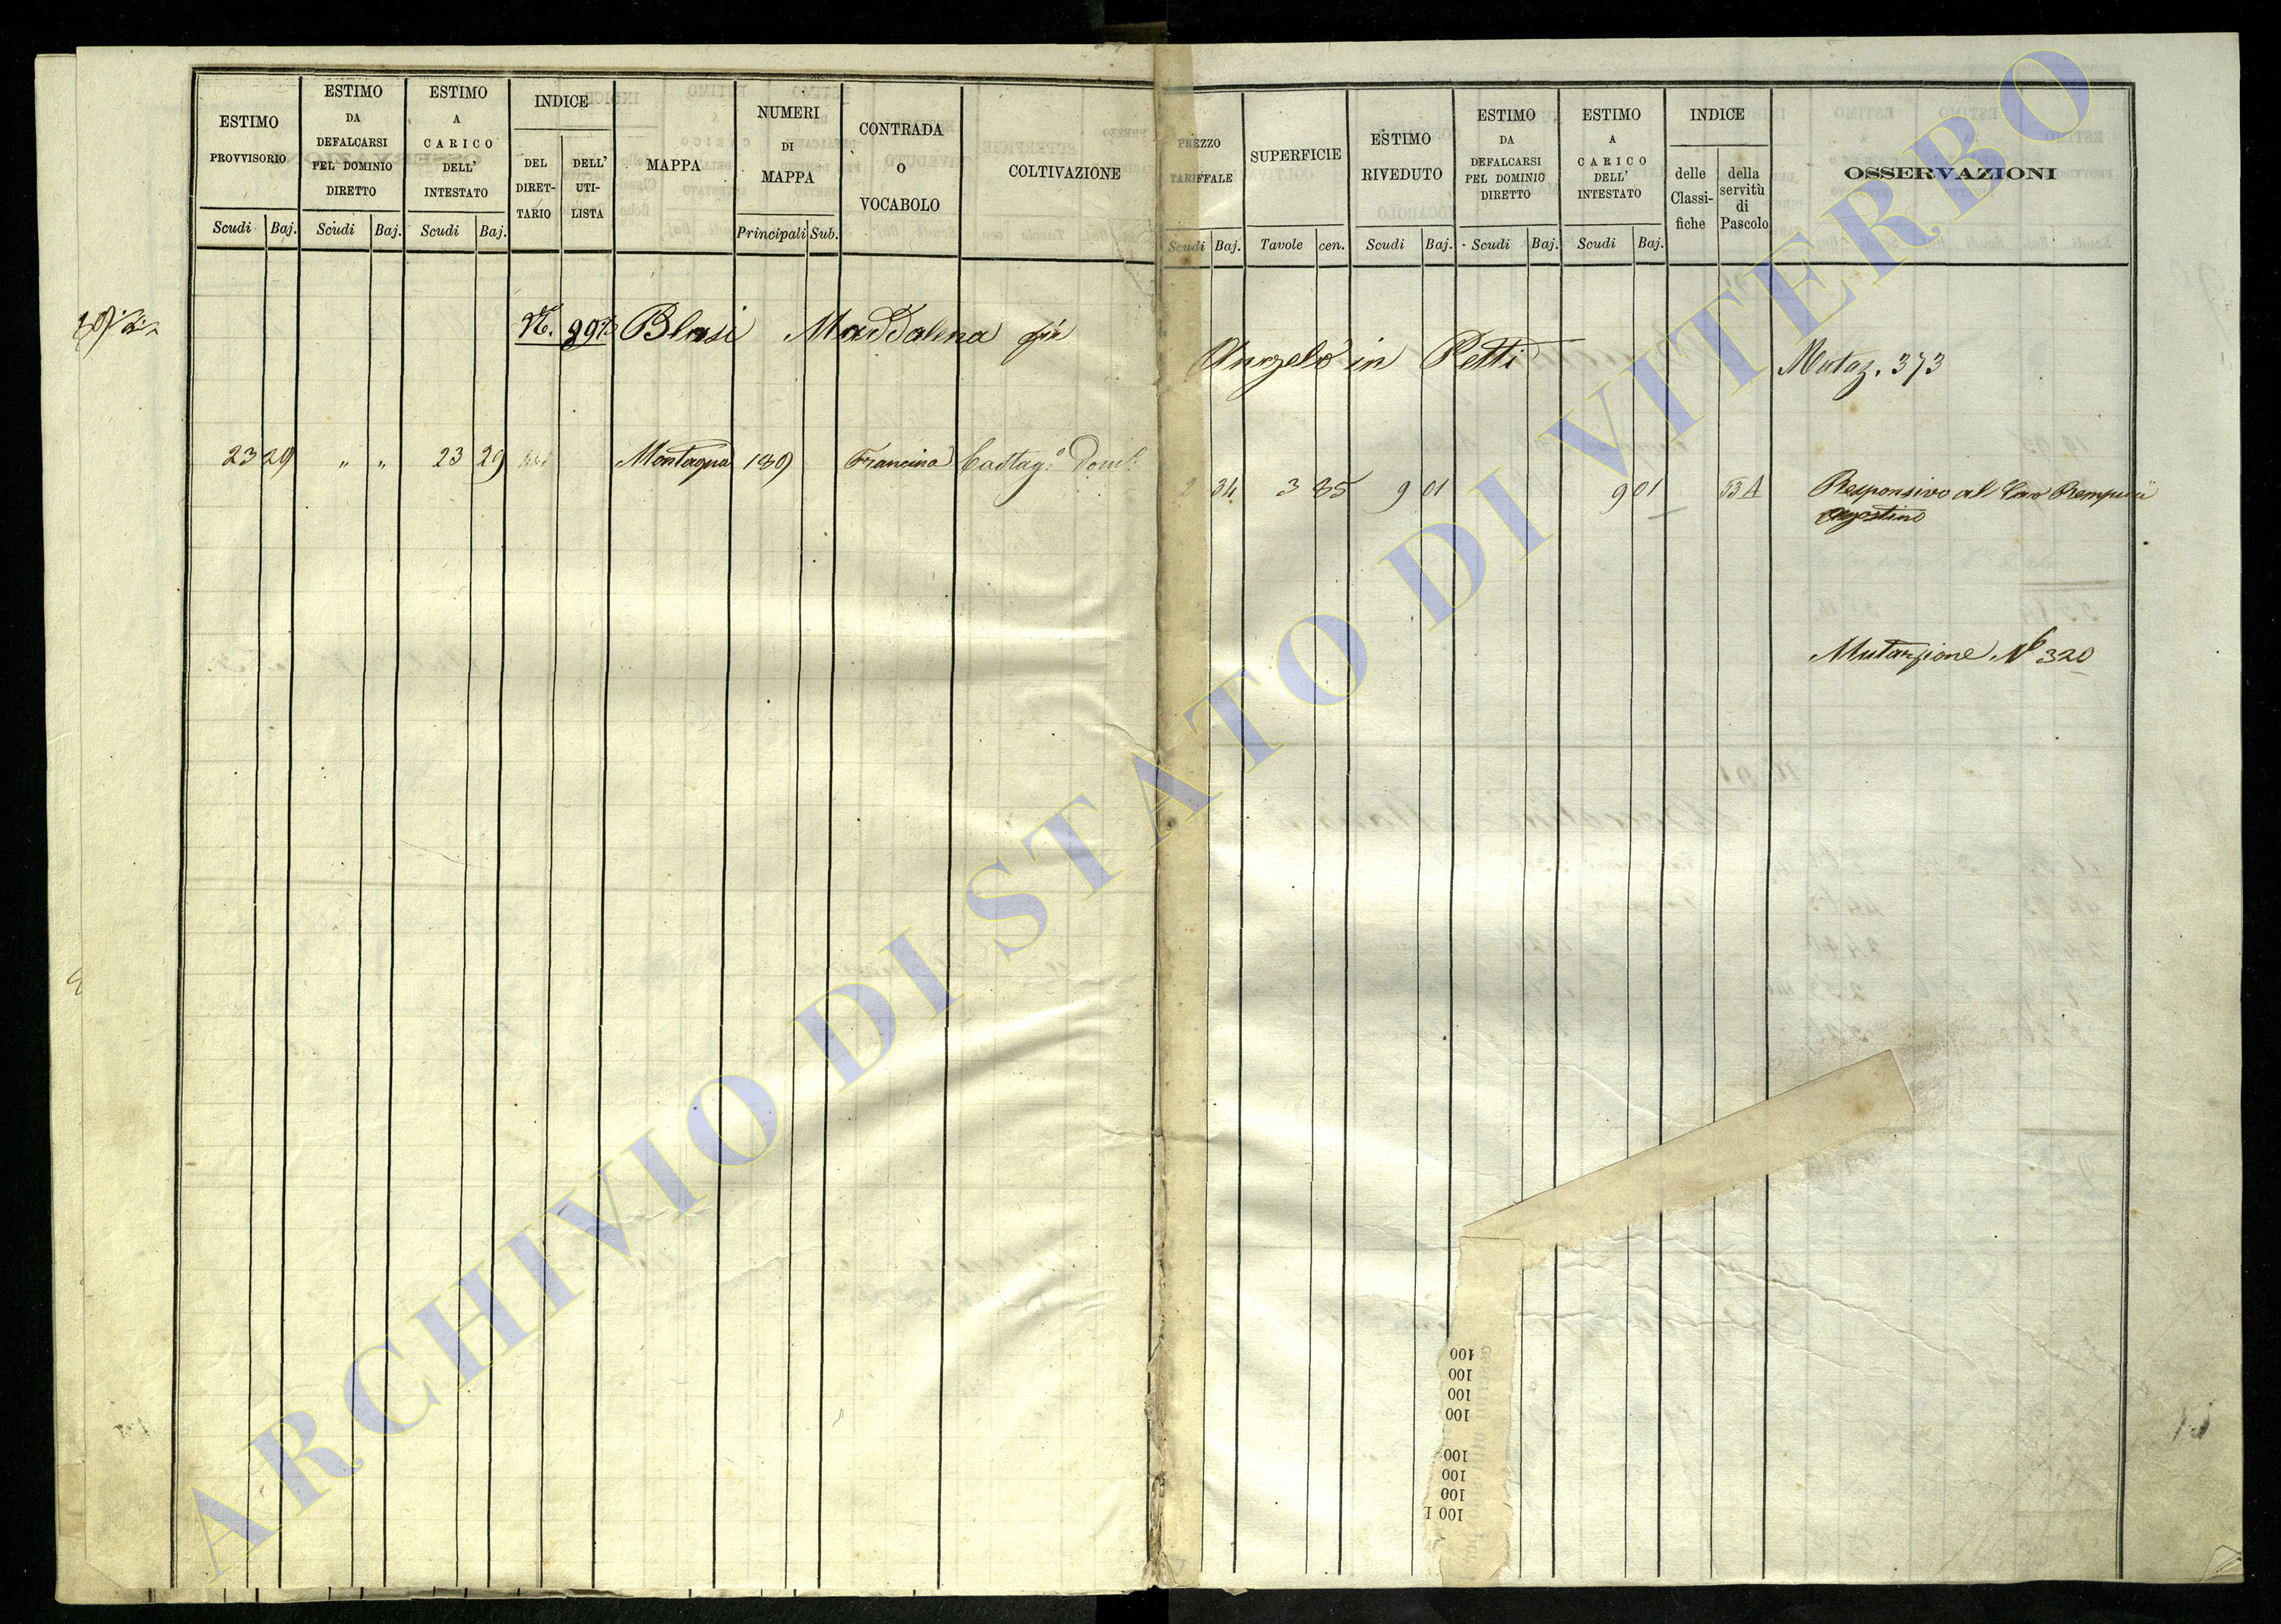 ESTIMO PROVVISORIO
Scudi Baj.
ESTIMO DA DEFALCARSI PEL DOMINIO DIRETTO
Scudi Baj.
ESTIMO A CARICO DELL' INTESTATO
Scudi Baj.
INDICE
DEL DIRET-TARIO
DELL' UTI-LISTA
MAPPA
NUMERI DI MAPPA
Principali Sub.
CONTRADA O VOCABOLO
COLTIVAZIONE
PREZZO TARIFFALE
Scudi Baj.
SUPERFICIE
Tavole cen.
ESTIMO RIVEDUTO
Scudi Baj.
ESTIMO DA DEFALCARSI PEL DOMINIO DIRETTO
Scudi Baj.
ESTIMO A CARICO DELL' INTESTATO
Scudi Baj.
INDICE
delle Classi-fiche
della servitù di Pascolo
OSSERVAZIONI
Blasi Maddalena
Angelo in Petti
Mutaz. 373
23 29 " " 23 29 Montagna 189 Francina Castag.o Dom.
2 34 3 85 9 01 9 01 BA Responsivo al
Agostino
Mutazione N 320
100
100
100
100
100
100
100
100 I
ARCHIVIO DI STATO DI VITERBO